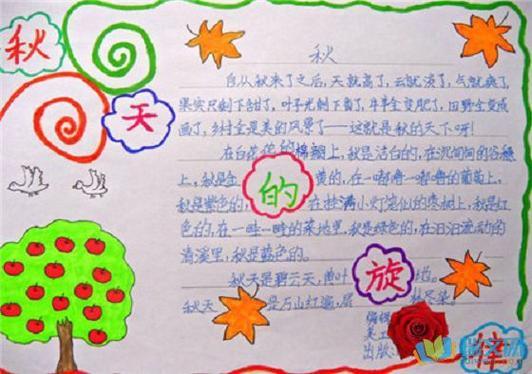 秋天的旋律
秋
自从秋来了之后,天就高了,云就淡了,气就爽了,
果实只剩下甜了,叶子光剩下香了,牛羊全变肥了,田野全变成
画了,乡村全是美的风景了——这就是秋的天下呀!
在白花花的棉朝上,秋是洁白的,在沉甸甸的谷穗
上,秋是金黄的,在一嘟噜一嘟噜的葡萄上,
秋是紫色的,在挂满小灯笼似的枣树上,秋是红
色的,在一畦一畦的菜地里,秋是绿色的,在汩汩流动的
清溪里,秋是蓝色的。
秋天是碧云天,黄叶
秋天 是万山红遍,层林尽染。
编辑
美工
出版